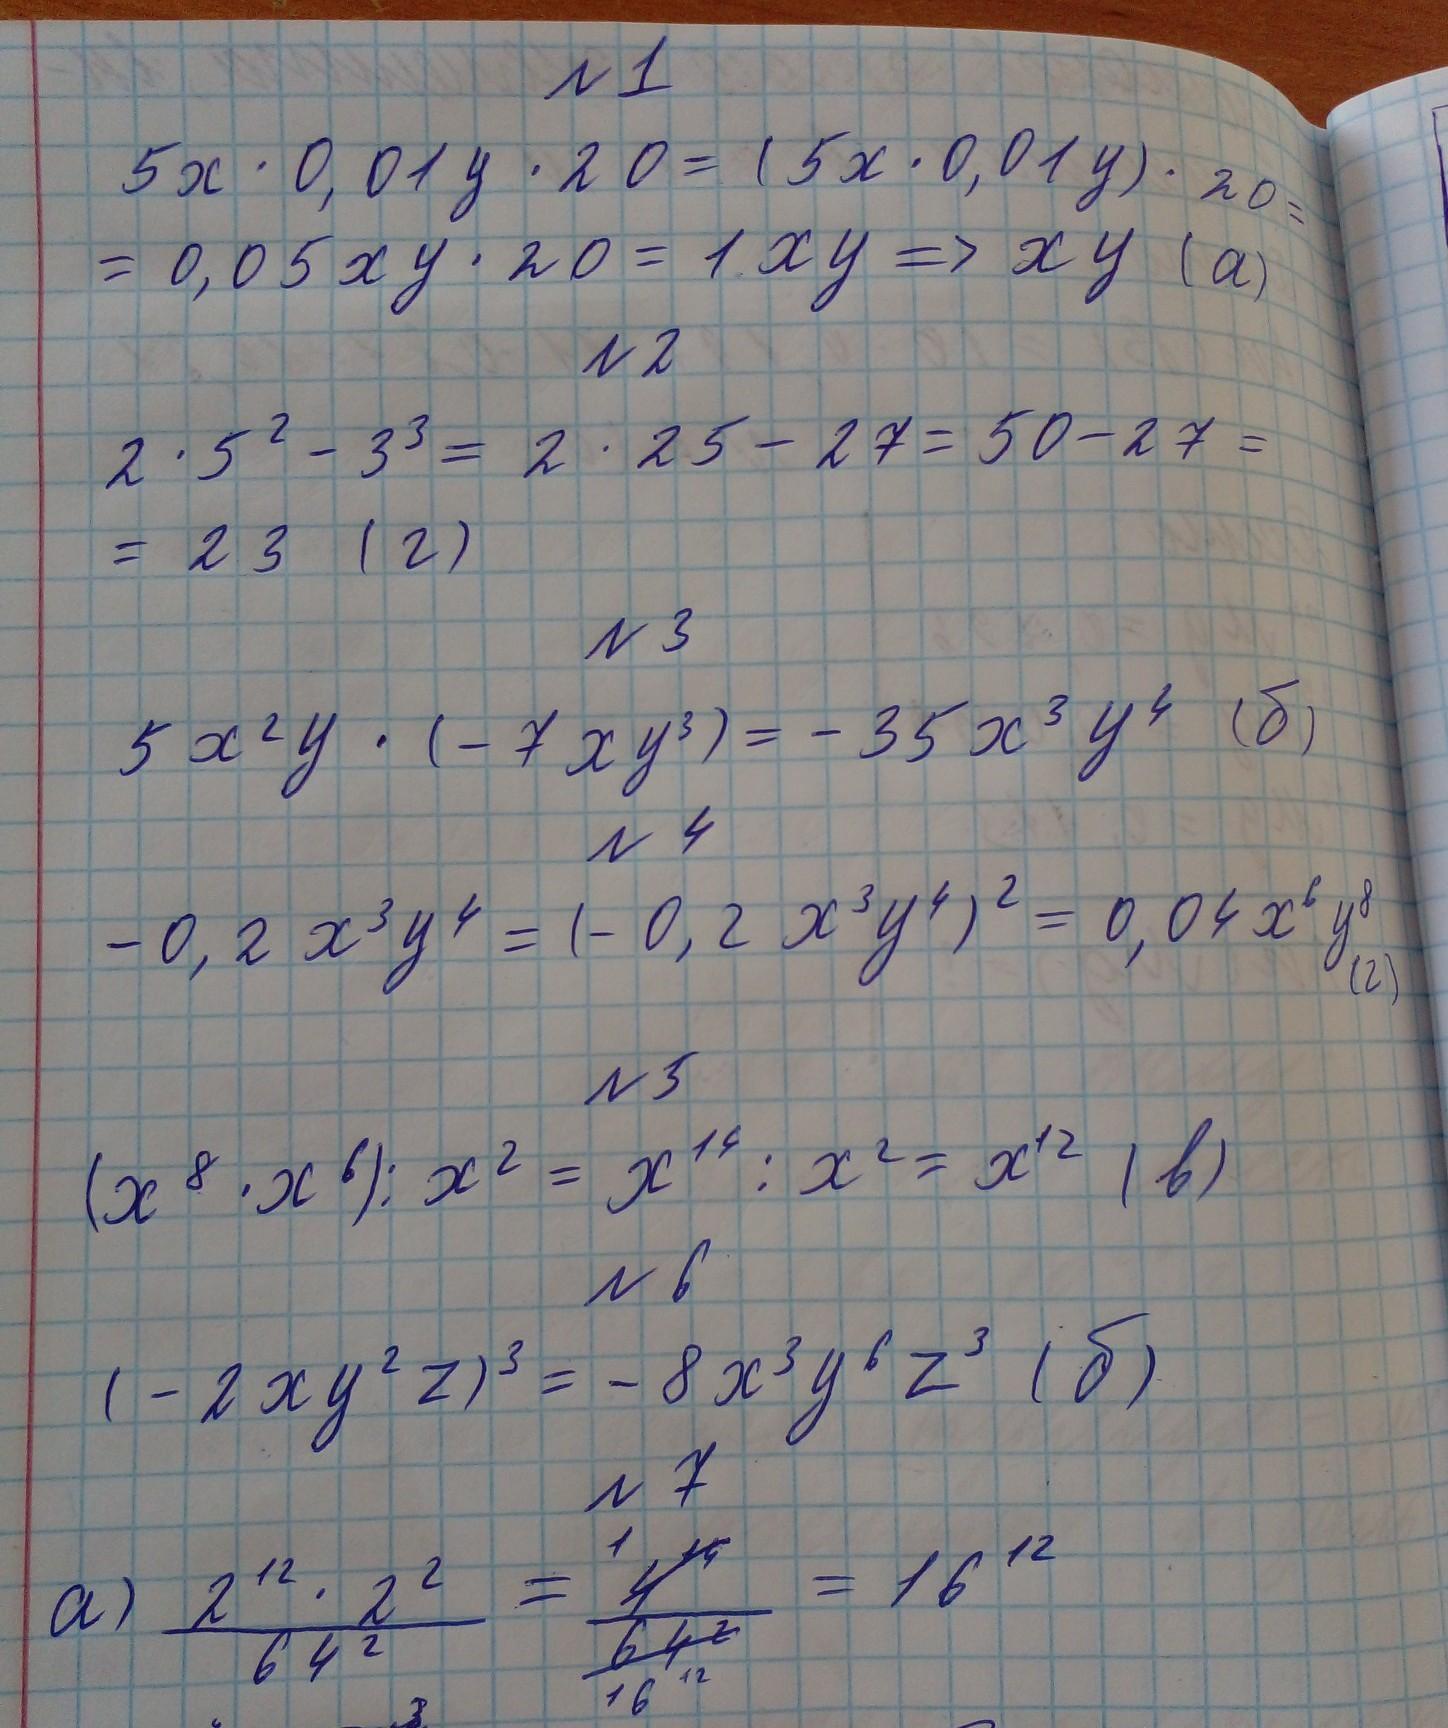 №1
5x · 0,01y · 20 = (5x · 0,01y) · 20 =
= 0,05xy · 20 = 1xy => xy (а)
№2
2 · 5² - 3³ = 2 · 25 - 27 = 50 - 27 =
= 23 (г)
№3
5x²y · (-7xy³) = -35x³y⁴ (б)
№4
-0,2x³y⁴ = (-0,2x³y⁴)² = 0,04x⁶y⁸ (г)
№5
(x⁸ · x⁶) : x² = x¹⁴ : x² = x¹² (в)
№6
(-2xy²z)³ = -8x³y⁶z³ (б)
№7
1
а) 2¹² · 2² / 64² = 4¹⁴ / 64² = 16¹²
16¹²